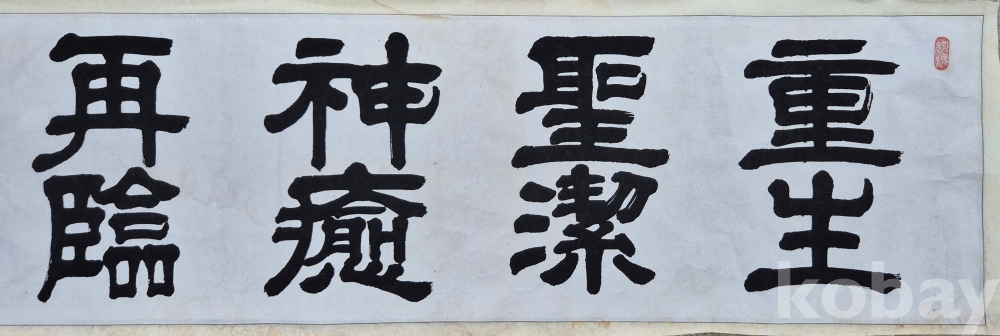 重生
聖潔
神癒
再臨
kobay